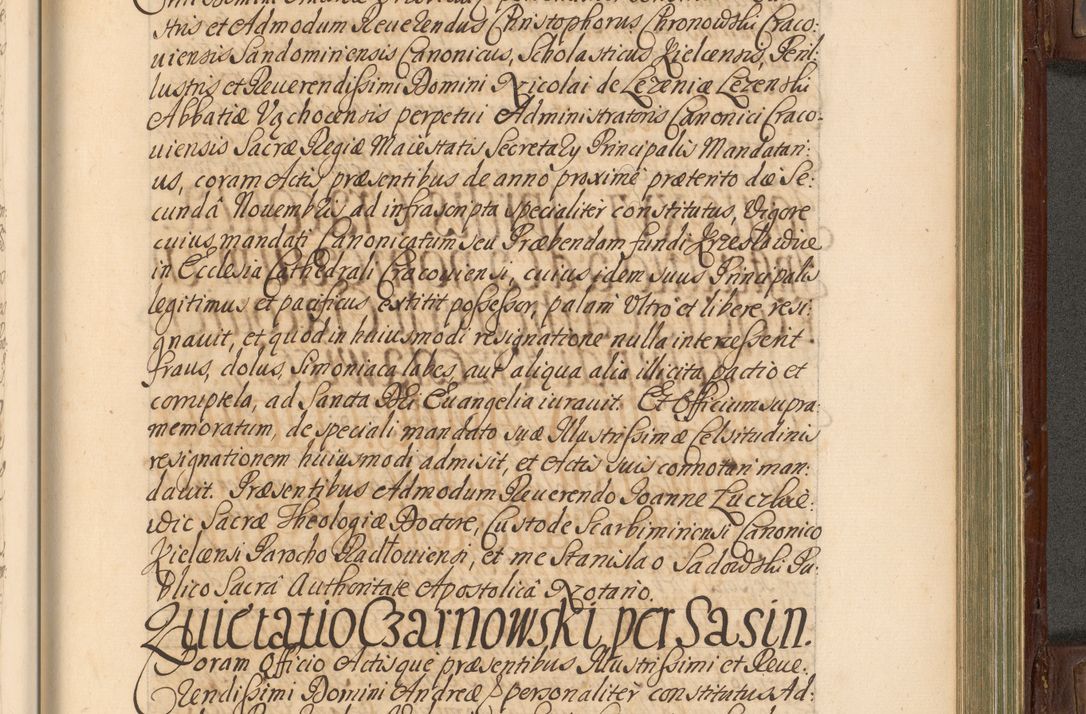 stris et Admodum Reuerendus Christophorus Chronowski Craco:
uiensis Sandomiriensis Canonicus, Scholasticus Kielcensis, Peril:
lustris et Reuerendissimi Domini Nicolai de Lezenice Lezenski
Abbatiæ Vąchocensis perpetui Administratoris Canonici Craco:
uiensis Sacræ Regiæ Maiestatis Secretary Principalis Mandatari:
us, coram Actis præsentibus de anno proxime prætento die Se:
cundâ Nouembris ad infrascripta specialiter constitutus, Vigore
cuius mandati Canonicatum seu Præbendam fundi
in Ecclesia Cathedrali Cracouiensi, cuius idem suus Principalis
legitimus et pacificus extitit possessor, palam Vltro et libere resi:
gnauit, et quod in huiusmodi resignatione nulla interessent
fraus, dolus, simoniaca labes aut aliqua alia illicita pactio et
corruptela, ad Sancta DEi Euangelia iurauit. Et Officium supra:
memoratum, de speciali mandato suæ Illustrissimæ Celsitudinis
resignationem huiusmodi admisit, et Actis suis connotari man:
dauit. Præsentibus Admodum Reuerendo Joanne
Sacræ Theologiæ Doctore, Custode Scarbimiriensi Canonico
Kielcensi Parocho Radłouiensi, et me Stanislao Sadowski Pu:
blico Sacrâ Authoritate Apostolicâ Notario.
Quietatio Czarnowski per Sasin.
Coram Officio Actisque præsentibus Illustrissimi et Reue:
rendissimi Domini Andreæ personaliter constitutus Ad: